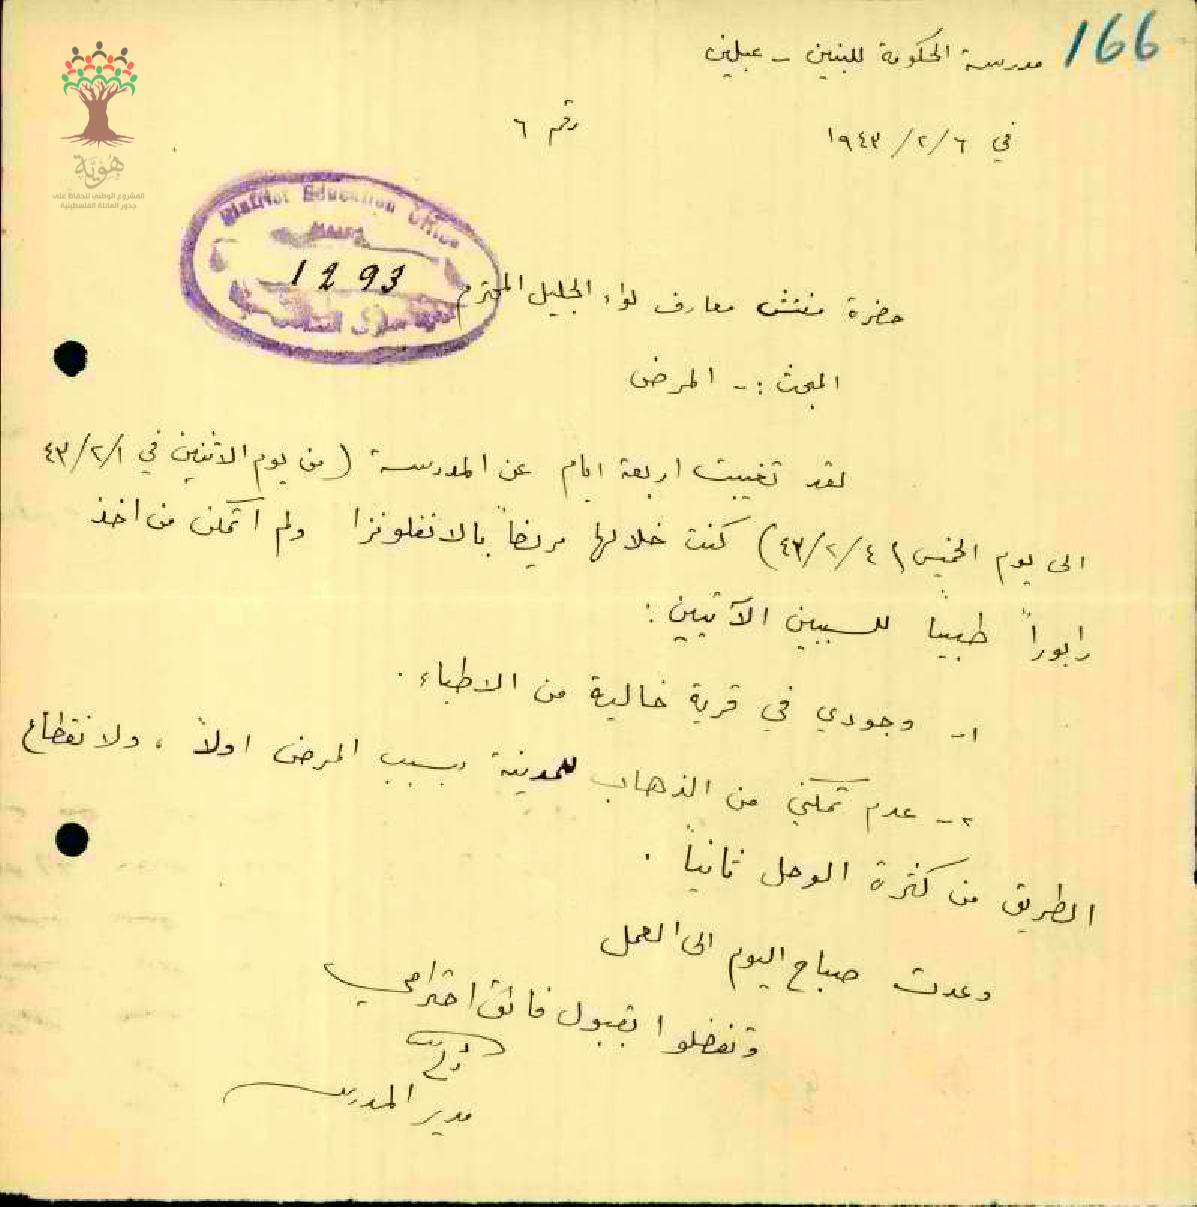 166
مدرسة الحكومة للبنين - عبلين
في ٦/٢/١٩٤٣
رقم ٦
هُوِيَّة
المشروع الوطني للحفاظ على
جذور العائلة الفلسطينية
District Education Office
1293
حضرة مفتش معارف لواء الجليل المحترم
المبحث :- المرض
لقد تغيبت اربعة ايام عن المدرسة (من يوم الاثنين في ٤٣/٢/١
الى يوم الخميس ٤٣/٢/٤) كنت خلالها مريضاً بالانفلونزا ولم اتمكن من اخذ
رابوراً طبياً للسببين الآتيين :
١- وجودي في قرية خالية من الاطباء .
٢- عدم تمكني من الذهاب للمدينة بسبب المرض اولاً ، ولانقطاع
الطريق من كثرة الوحل ثانياً .
وعدت صباح اليوم الى العمل
وتفضلوا بقبول فائق احترامي
مدير المدرسة